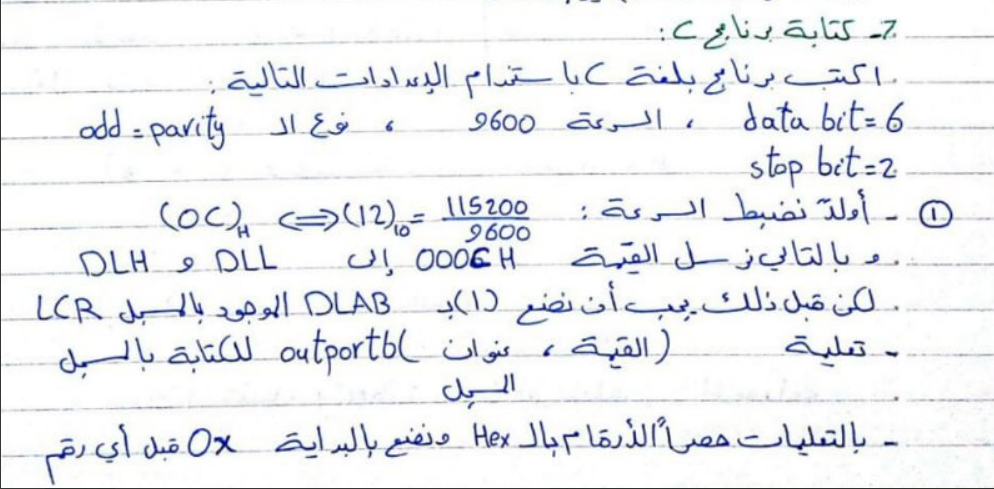 7- كتابة برنامج C:
. اكتب برنامج بلغة C باستخدام الإعدادات التالية:
data bit = 6 ، السرعة 9600 ، نوع الـ odd = parity
stop bit = 2
① - أولاً نضبط السرعة : 115200/9600 = (12)₁₀ ⇔ (0C)H
. وبالتالي نرسل القيمة 000CH إلى DLL و DLH
. لكن قبل ذلك يجب أن نضع (1) بـ DLAB الموجود بالسجل LCR
- تعليمة outportb( عنوان ، القيمة) للكتابة بالسجل
السجل
- بالتعليمات حصراً الأرقام بالـ Hex ونضع بالبداية 0x قبل أي رقم